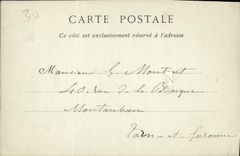 30
CARTE POSTALE
Ce côté est exclusivement réservé à l'adresse
Monsieur G. Montet
40 rue de la Banque
Montauban
Tarn-et-Garonne